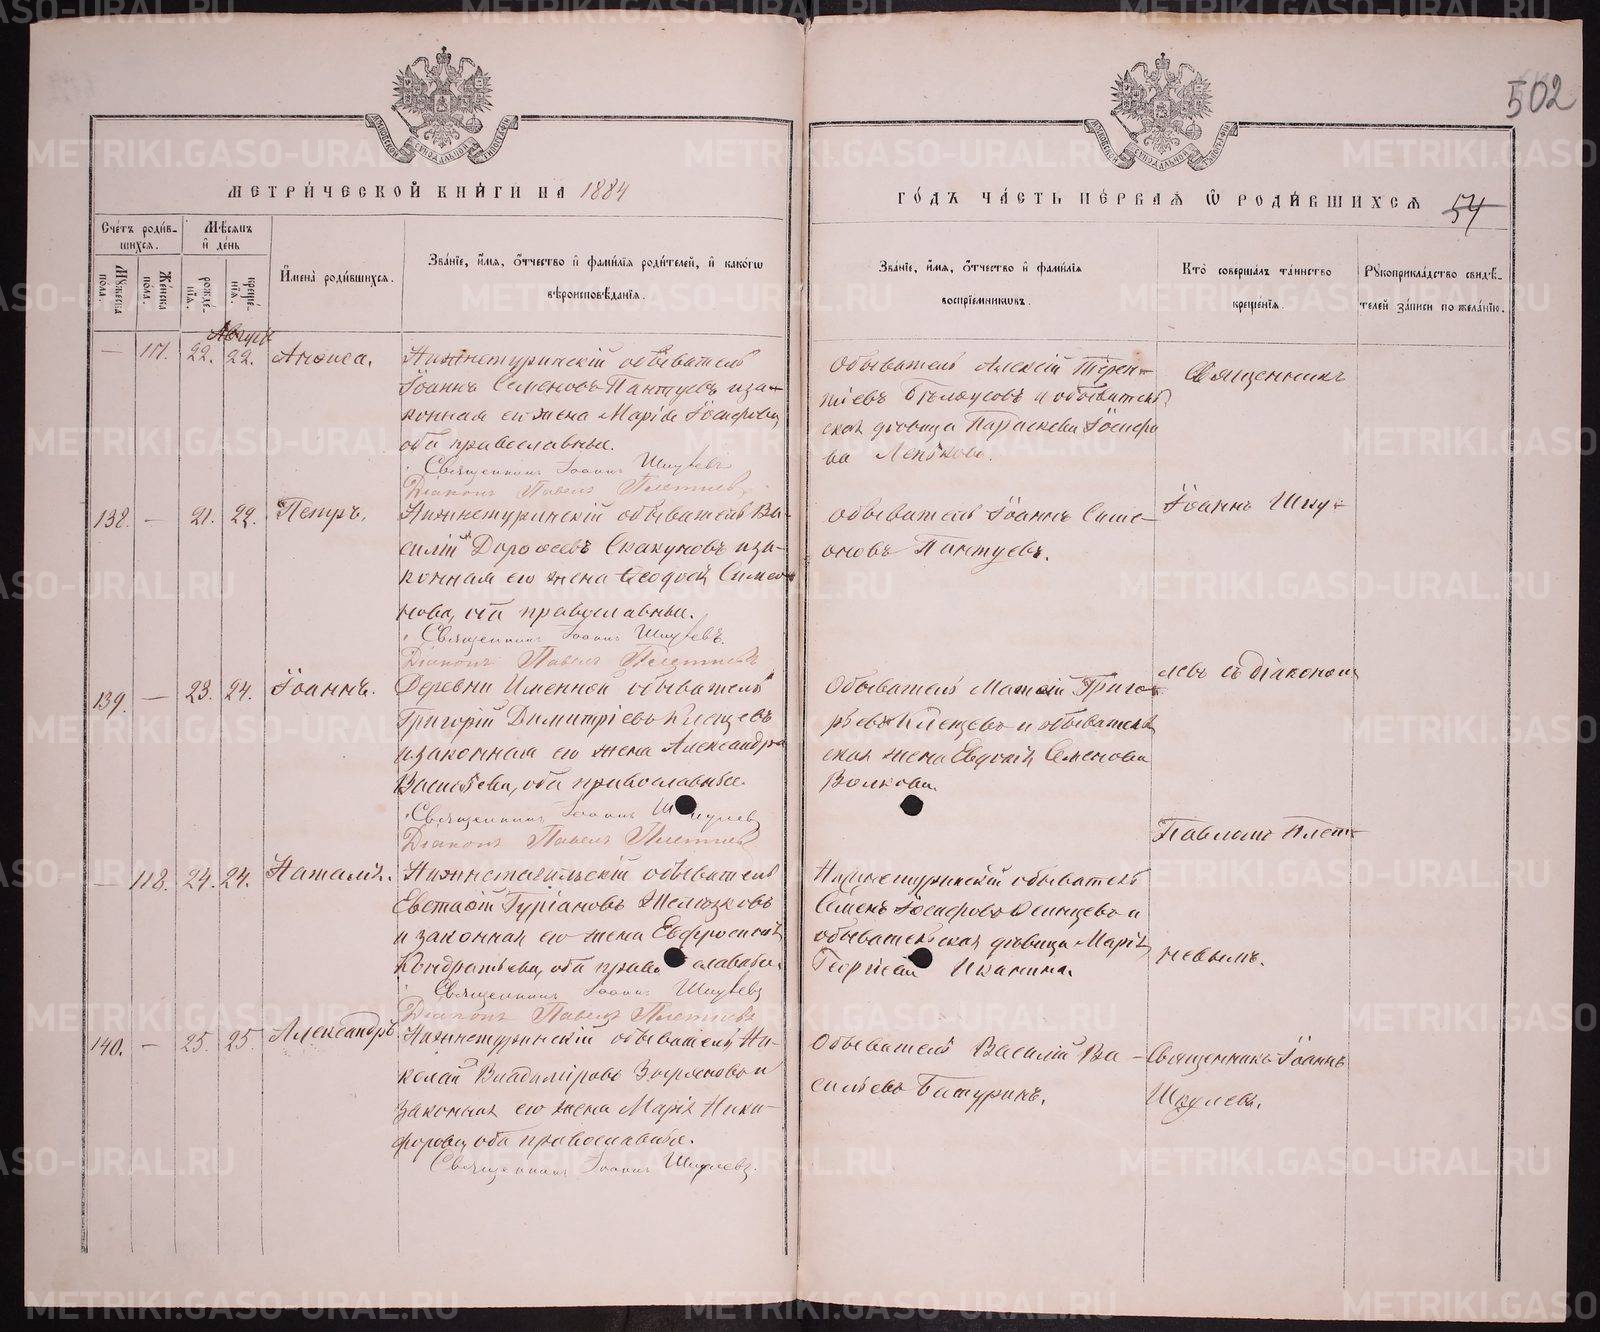 502
МЕТРИ́ЧЕСКОЙ КНИ́ГИ НА 1884
ГО́ДЪ ЧА́СТЬ ПЕ́РВАѦ Ѿ РОДИ́ВШИХСѦ 54
Сче́тъ роди́в-
шихсѧ.
Мѣ́сѧцъ
и҆ де́нь
Мꙋ́жеска
пола.
Же́нска
пола.
рожде́-
нїѧ.
креще́-
нїѧ.
И҆мена̀ роди́вшихсѧ.
Зва́нїе, и҆́мѧ, ѻ҆́тчество и҆ фами́лїѧ роди́телей, и҆ како́гѡ
вѣроисповѣ́данїѧ.
Зва́нїе, и҆́мѧ, ѻ҆́тчество и҆ фами́лїѧ
воспрїе́мникѡвъ.
Кто̀ соверша́лъ та́инство
креще́нїѧ.
Рꙋкоприкла́дство свидѣ́-
телей за́писи по жела́нїю.
Августъ
— 117. 22. 22. Анѳиса.
Нижнетуринскій обыватель
Іоаннъ Семеновъ Пантуевъ и за-
конная его жена Марія Іосифова,
оба православные.
Священникъ Іоаннъ Шкулевъ
Діаконъ Павелъ Плетневъ
Обыватель Алексій Терен-
тіевъ Бѣлоусовъ и обыватель-
ская дѣвица Параскева Іосифо
ва
Священникъ
138. — 21. 22. Петръ.
Нижнетуринскій обыватель Ва-
силій Дороѳеевъ Скакуновъ и за-
конная его жена Ѳеодосія Симео-
нова, оба православные.
Священникъ Іоаннъ Шкулевъ.
Діаконъ Павелъ Плетневъ
Обыватель Іоаннъ Симе-
оновъ Пантуевъ.
Іоаннъ Шку-
139. — 23. 24. Іоаннъ.
Деревни Именной обыватель
Григорій Димитріевъ Клещевъ
и законная его жена Александра
Васильева, оба православные.
Священникъ Іоаннъ Шкулевъ
Діаконъ Павелъ Плетневъ
Обыватель Матѳій Григо-
рьевъ Клещевъ и обыватель
ская жена Евдокія Семенова
Волкова.
левъ съ діакономъ
Павломъ Плет-
— 118. 24. 24. Наталія.
Нижнетагильскій обыватель
Евстаѳій Гуріановъ Желѣзковъ
и законная его жена Евфросинія
Кондратьева, оба православные.
Священникъ Іоаннъ Шкулевъ
Діаконъ Павелъ Плетневъ
Нижнетуринскій обыватель
Семенъ Іосифовъ Осинцевъ и
обывательская дѣвица Марія
Георгіева Икапина.
невымъ.
140. — 25. 25. Александръ.
Нижнетуринскій обыватель Ни-
колай Владиміровъ Зыряновъ и
законная его жена Марія Ники-
форова, оба православные.
Священникъ Іоаннъ Шкулевъ.
Обыватель Василій Ва-
сильевъ Батуринъ.
Священникъ Іоаннъ
Шкулевъ.
METRIKI.GASO-URAL.RU